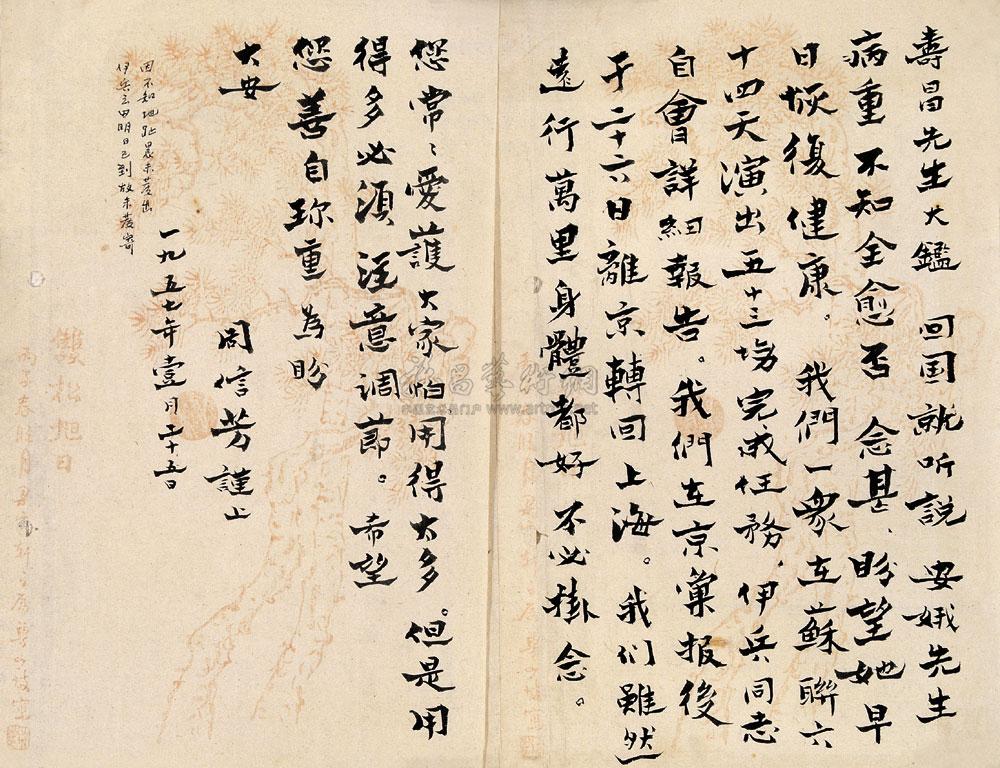 壽昌先生大鑑 回国就听説 安娥先生
病重不知全愈否 念甚、盼望她早
日恢復健康。我們一衆在蘇聯六
十四天演出五十三場完成任務，伊兵同志
自會詳細報告。我們在京彙报後
于二十六日離京轉回上海。我们雖然
遠行萬里身體都好不必掛念。
您常〻愛護大家怕用得太多。但是用
得多必須注意調節。希望
您善自珍重 為盼
大安
周信芳謹上
一九五七年壹月二十五日
因不知地址農未發出
伊兵云田明日已到故未發寄
雙松旭日